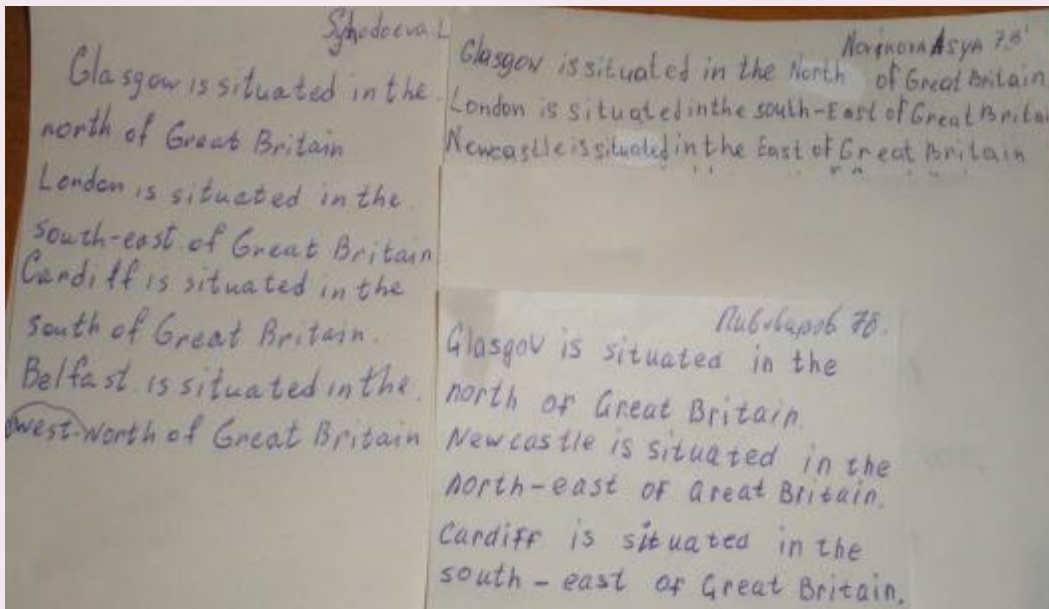 Glasgow is situated in the
north of Great Britain
London is situated in the
south-east of Great Britain
Cardiff is situated in the
south of Great Britain.
Belfast is situated in the
west-north of Great Britain
Asya 7.б
Glasgow is situated in the North of Great Britain
London is situated in the south-East of Great Britai
Newcastle is situated in the East of Great Britain
Пивоваров 7б.
Glasgov is situated in the
north of Great Britain.
Newcastle is situated in the
north-east of Great Britain.
Cardiff is situated in the
south-east of Great Britain.